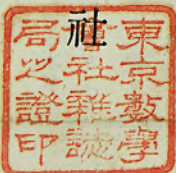 社
東京數學
會社雜誌
局之證印